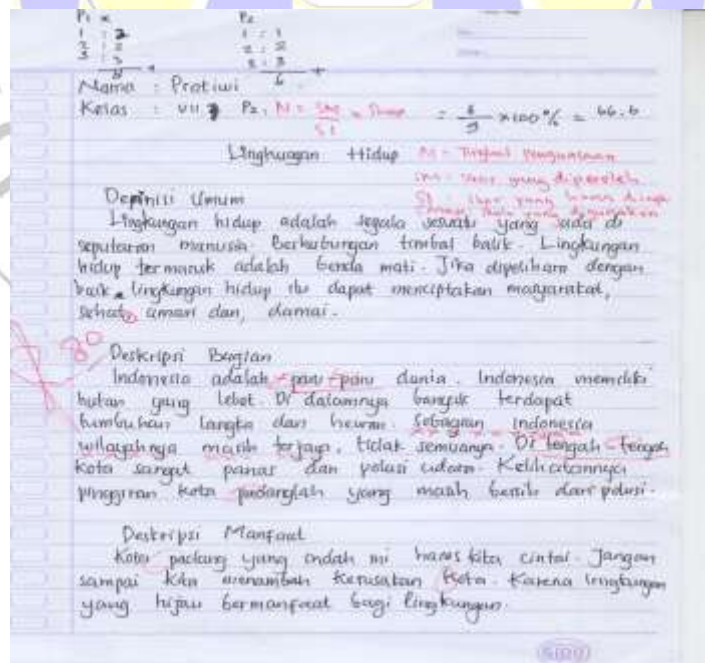 P1 x P2
1 : 2 1 : 1
2 : 2 2 : 2
3 : 3 3 : 3
8 + 6 +
Nama : Pratiwi
Kelas : VII P2. N = SM / SI x Smax = 6/9 x 100 % = 66.6
Lingkungan Hidup N = Tingkat penguasaan
SM = skor yang diperoleh
Definisi Umum SI = skor yang harus dicapai
Smax = skala yang digunakan
Lingkungan hidup adalah segala sesuatu yang ada di
seputaran manusia. Berhubungan timbal balik. Lingkungan
hidup termasuk adalah benda mati. Jika dipelihara dengan
baik lingkungan hidup itu dapat menciptakan masyarakat,
sehat, aman dan, damai.
80
Deskripsi Bagian
Indonesia adalah paru-paru dunia. Indonesia memiliki
hutan yang lebat. Di dalamnya banyak terdapat
tumbuhan langka dan hewan. Sebagian Indonesia
wilayahnya masih terjaga, tidak semuanya. Di tengah-tengah
kota sangat panas dan polusi udara. Kelihatannya
pinggiran kota padanglah yang masih bersih dari polusi.
Deskripsi Manfaat
Kota padang yang indah ini harus kita cintai. Jangan
sampai kita menambah kerusakan kota. Karena lingkungan
yang hijau bermanfaat bagi lingkungan.